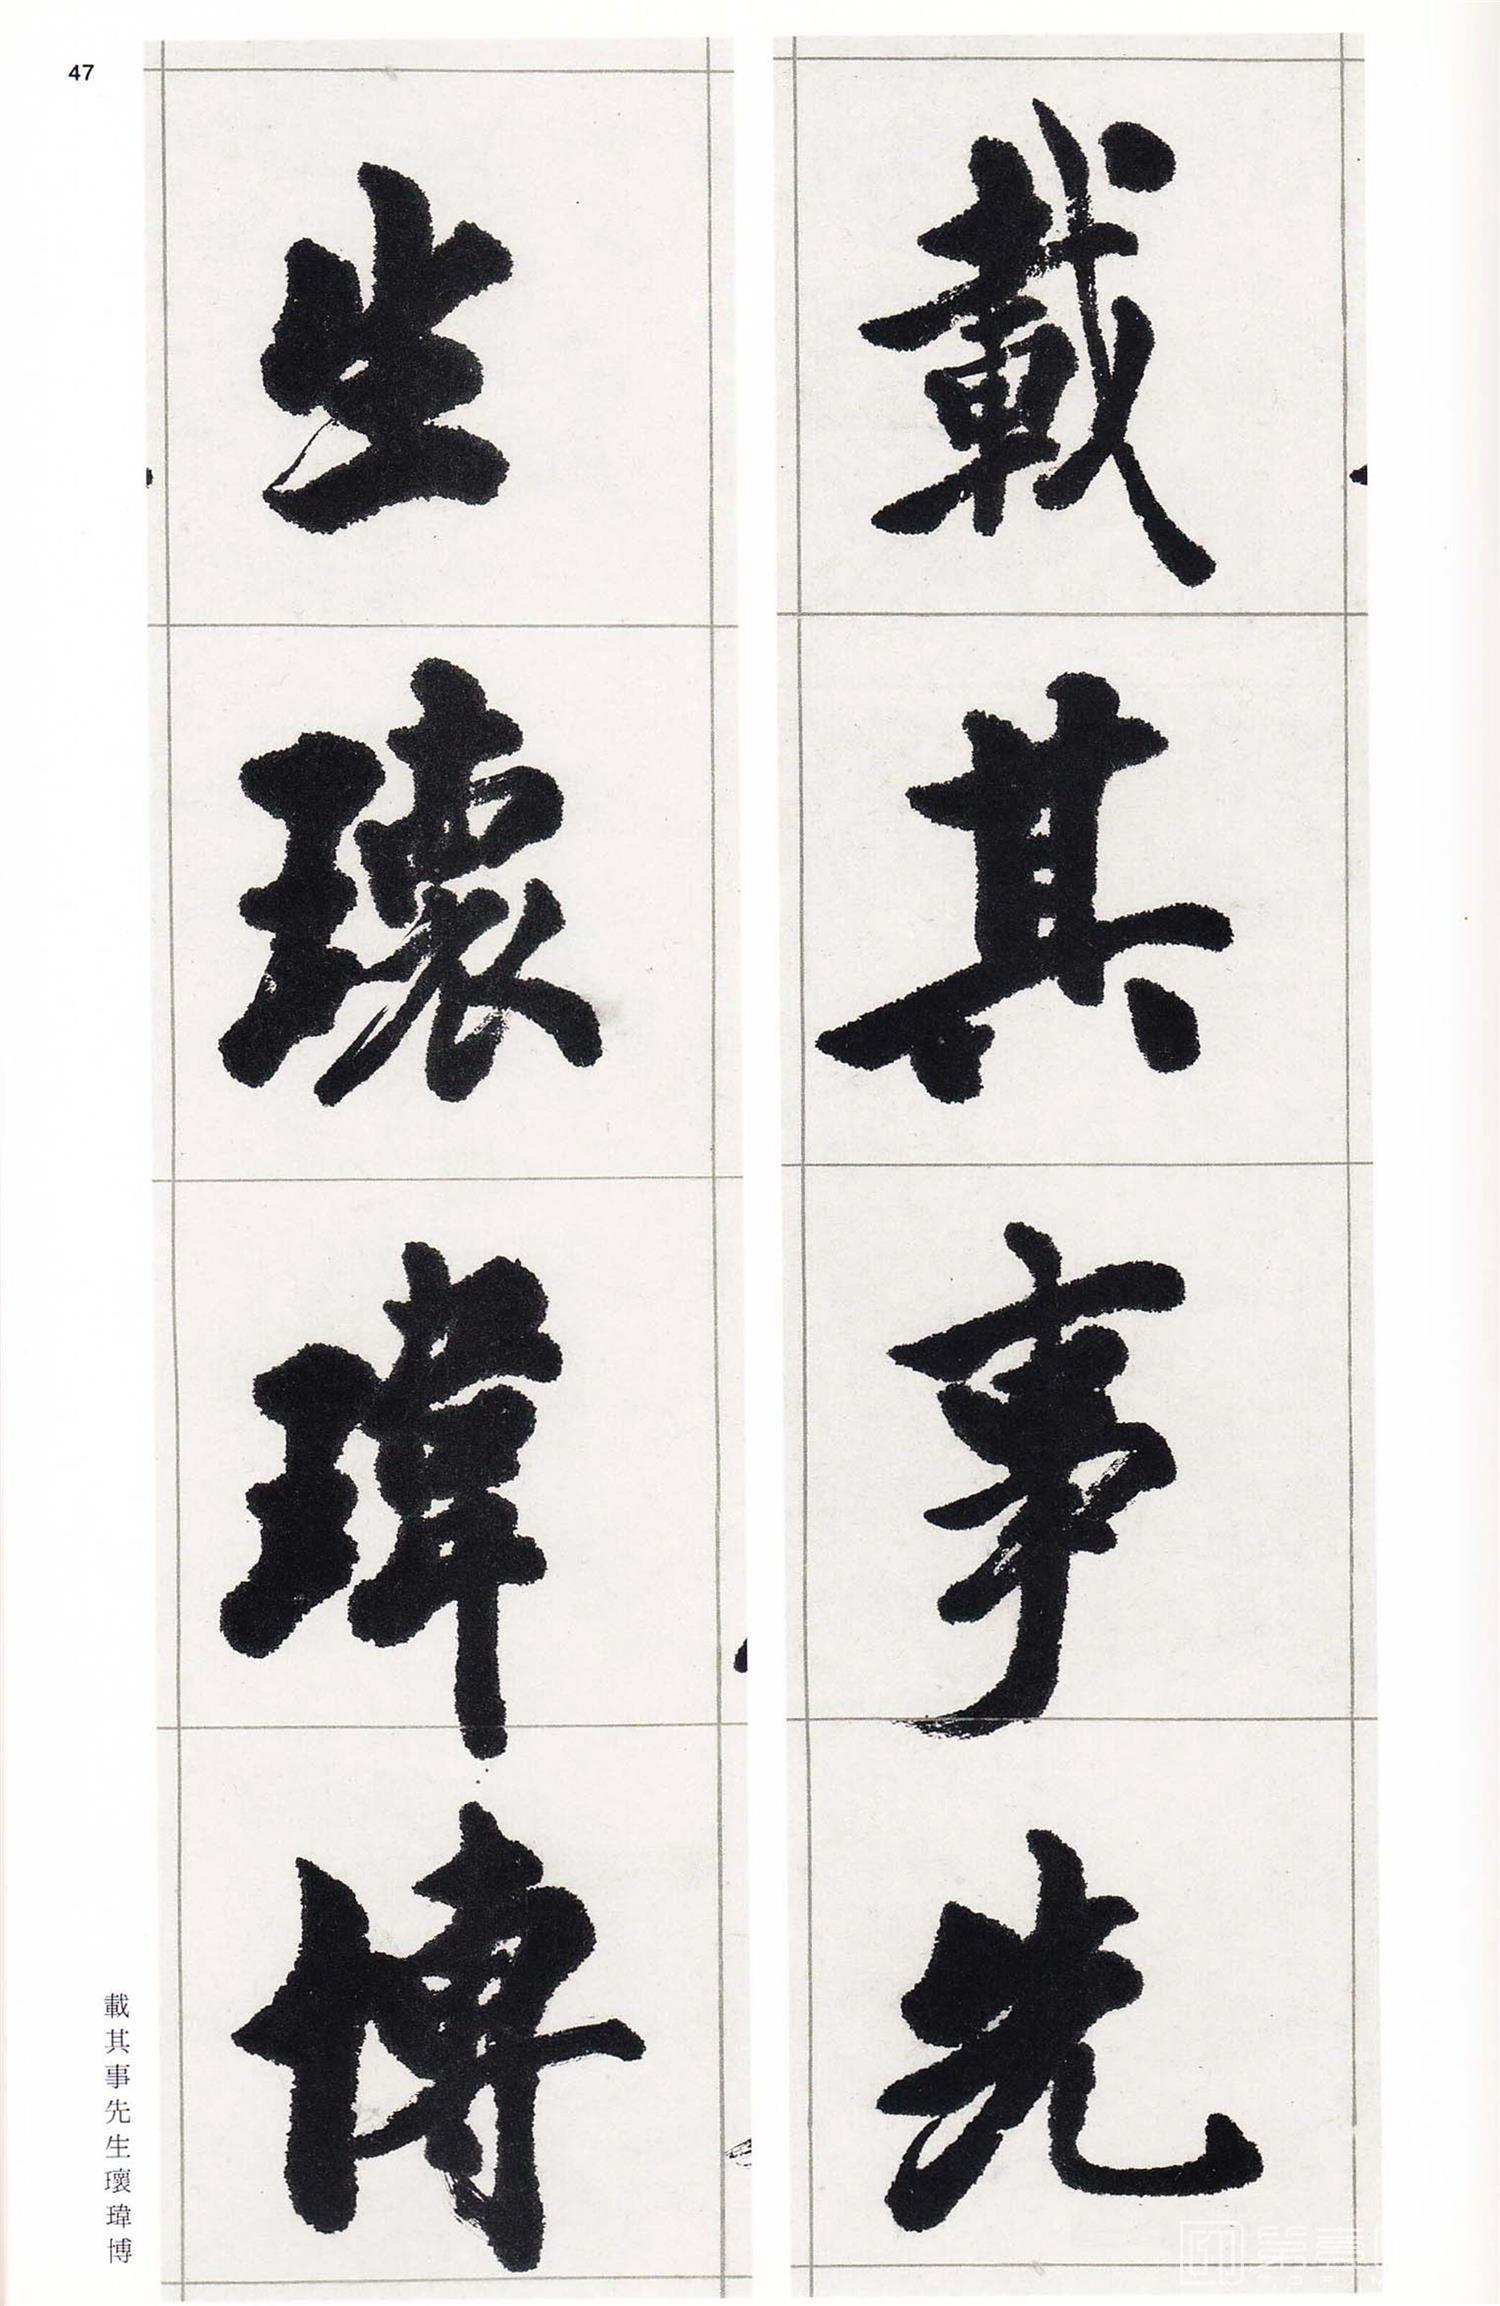 載其事先
生瓌瑋博
載其事先生瓌瑋博
47